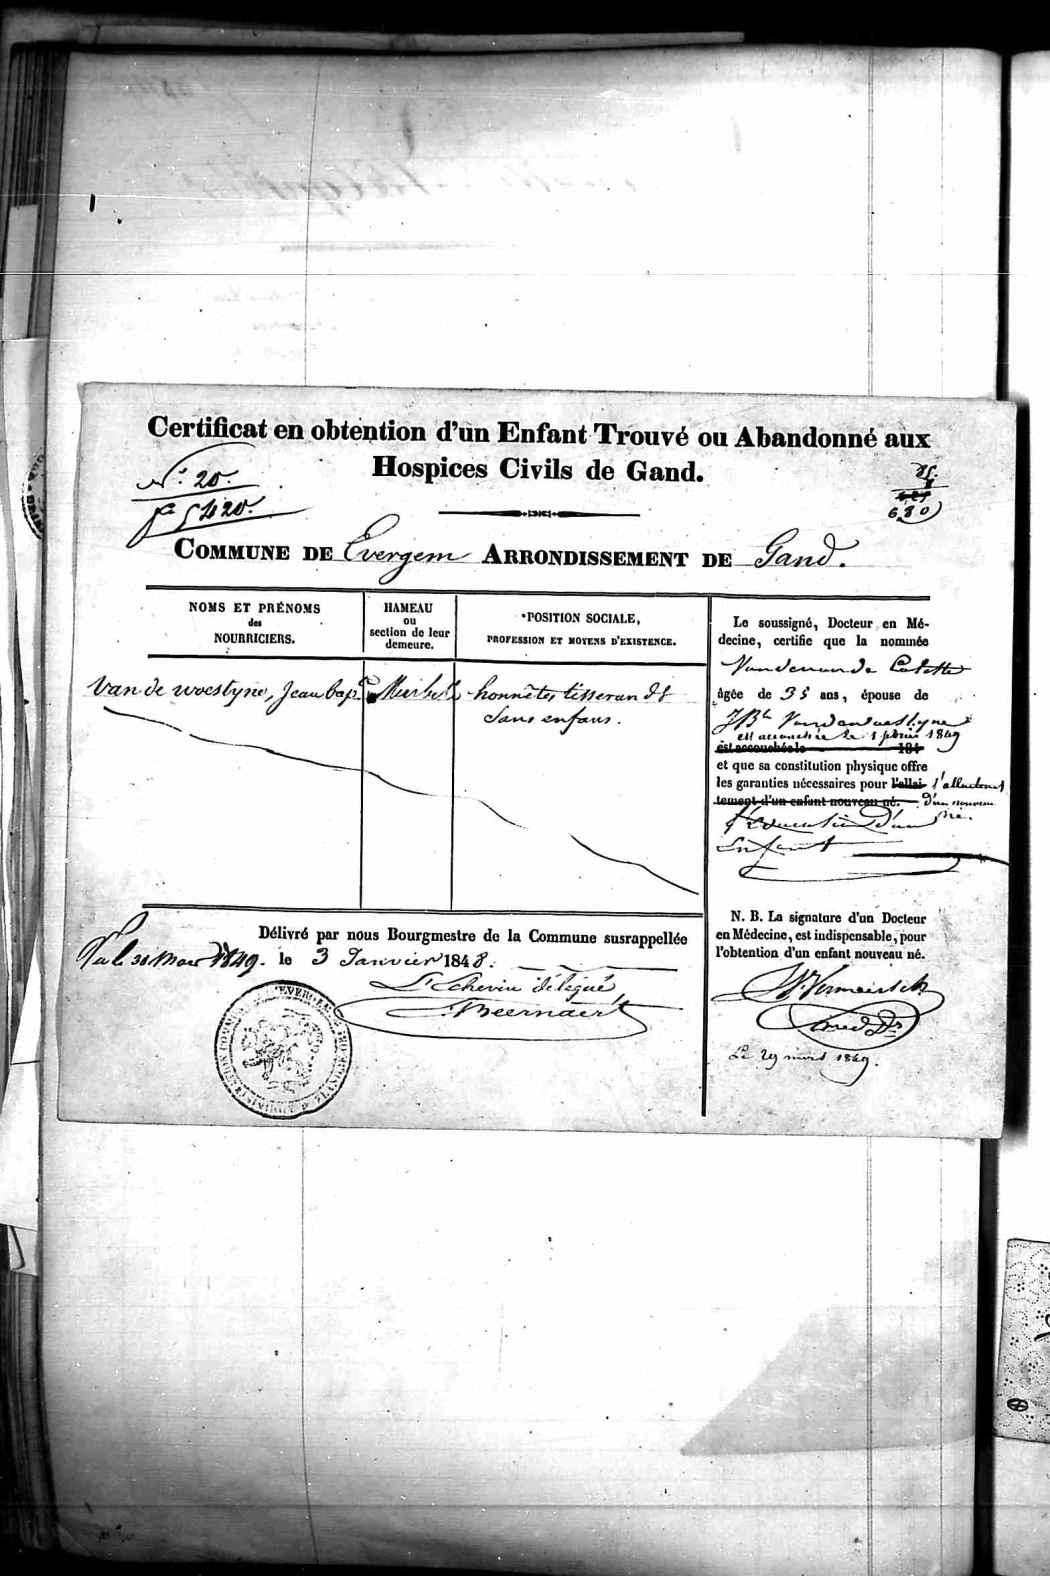 Certificat en obtention d'un Enfant Trouvé ou Abandonné aux
Hospices Civils de Gand.
N.° 20.
5420.
680
COMMUNE DE Evergem ARRONDISSEMENT DE Gand.
NOMS ET PRÉNOMS
des
NOURRICIERS.
HAMEAU
ou
section de leur
demeure.
POSITION SOCIALE,
PROFESSION ET MOYENS D'EXISTENCE.
Van de woestyne, Jean bapte
honnêtes tisserands
Sans enfans.
Le soussigné, Docteur en Mé-
decine, certifie que la nommée
âgée de 35 ans, épouse de
est accouchée le 1 1849
est accouchée le 184
et que sa constitution physique offre
les garanties nécessaires pour l'allai- l'allaitement
tement d'un enfant nouveau né. d'un nouveau
né.
d'un
Enfant
N. B. La signature d'un Docteur
en Médecine, est indispensable, pour
l'obtention d'un enfant nouveau né.
Le 29 mars 1849.
Délivré par nous Bourgmestre de la Commune susrappellée
Vu le 30 Mars 1849. le 3 Janvier 1848.
L'Echevin délégué,
Beernaert